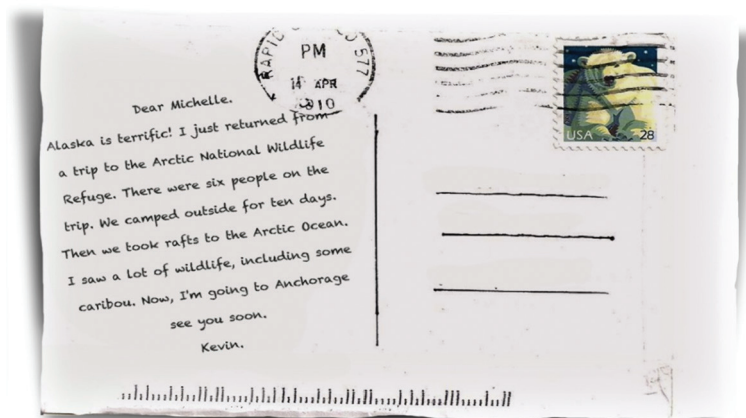 RAPID CO 577
PM
14 APR
2010
USA 28
Dear Michelle.
Alaska is terrific! I just returned from
a trip to the Arctic National Wildlife
Refuge. There were six people on the
trip. We camped outside for ten days.
Then we took rafts to the Arctic Ocean.
I saw a lot of wildlife, including some
caribou. Now, I'm going to Anchorage
see you soon.
Kevin.